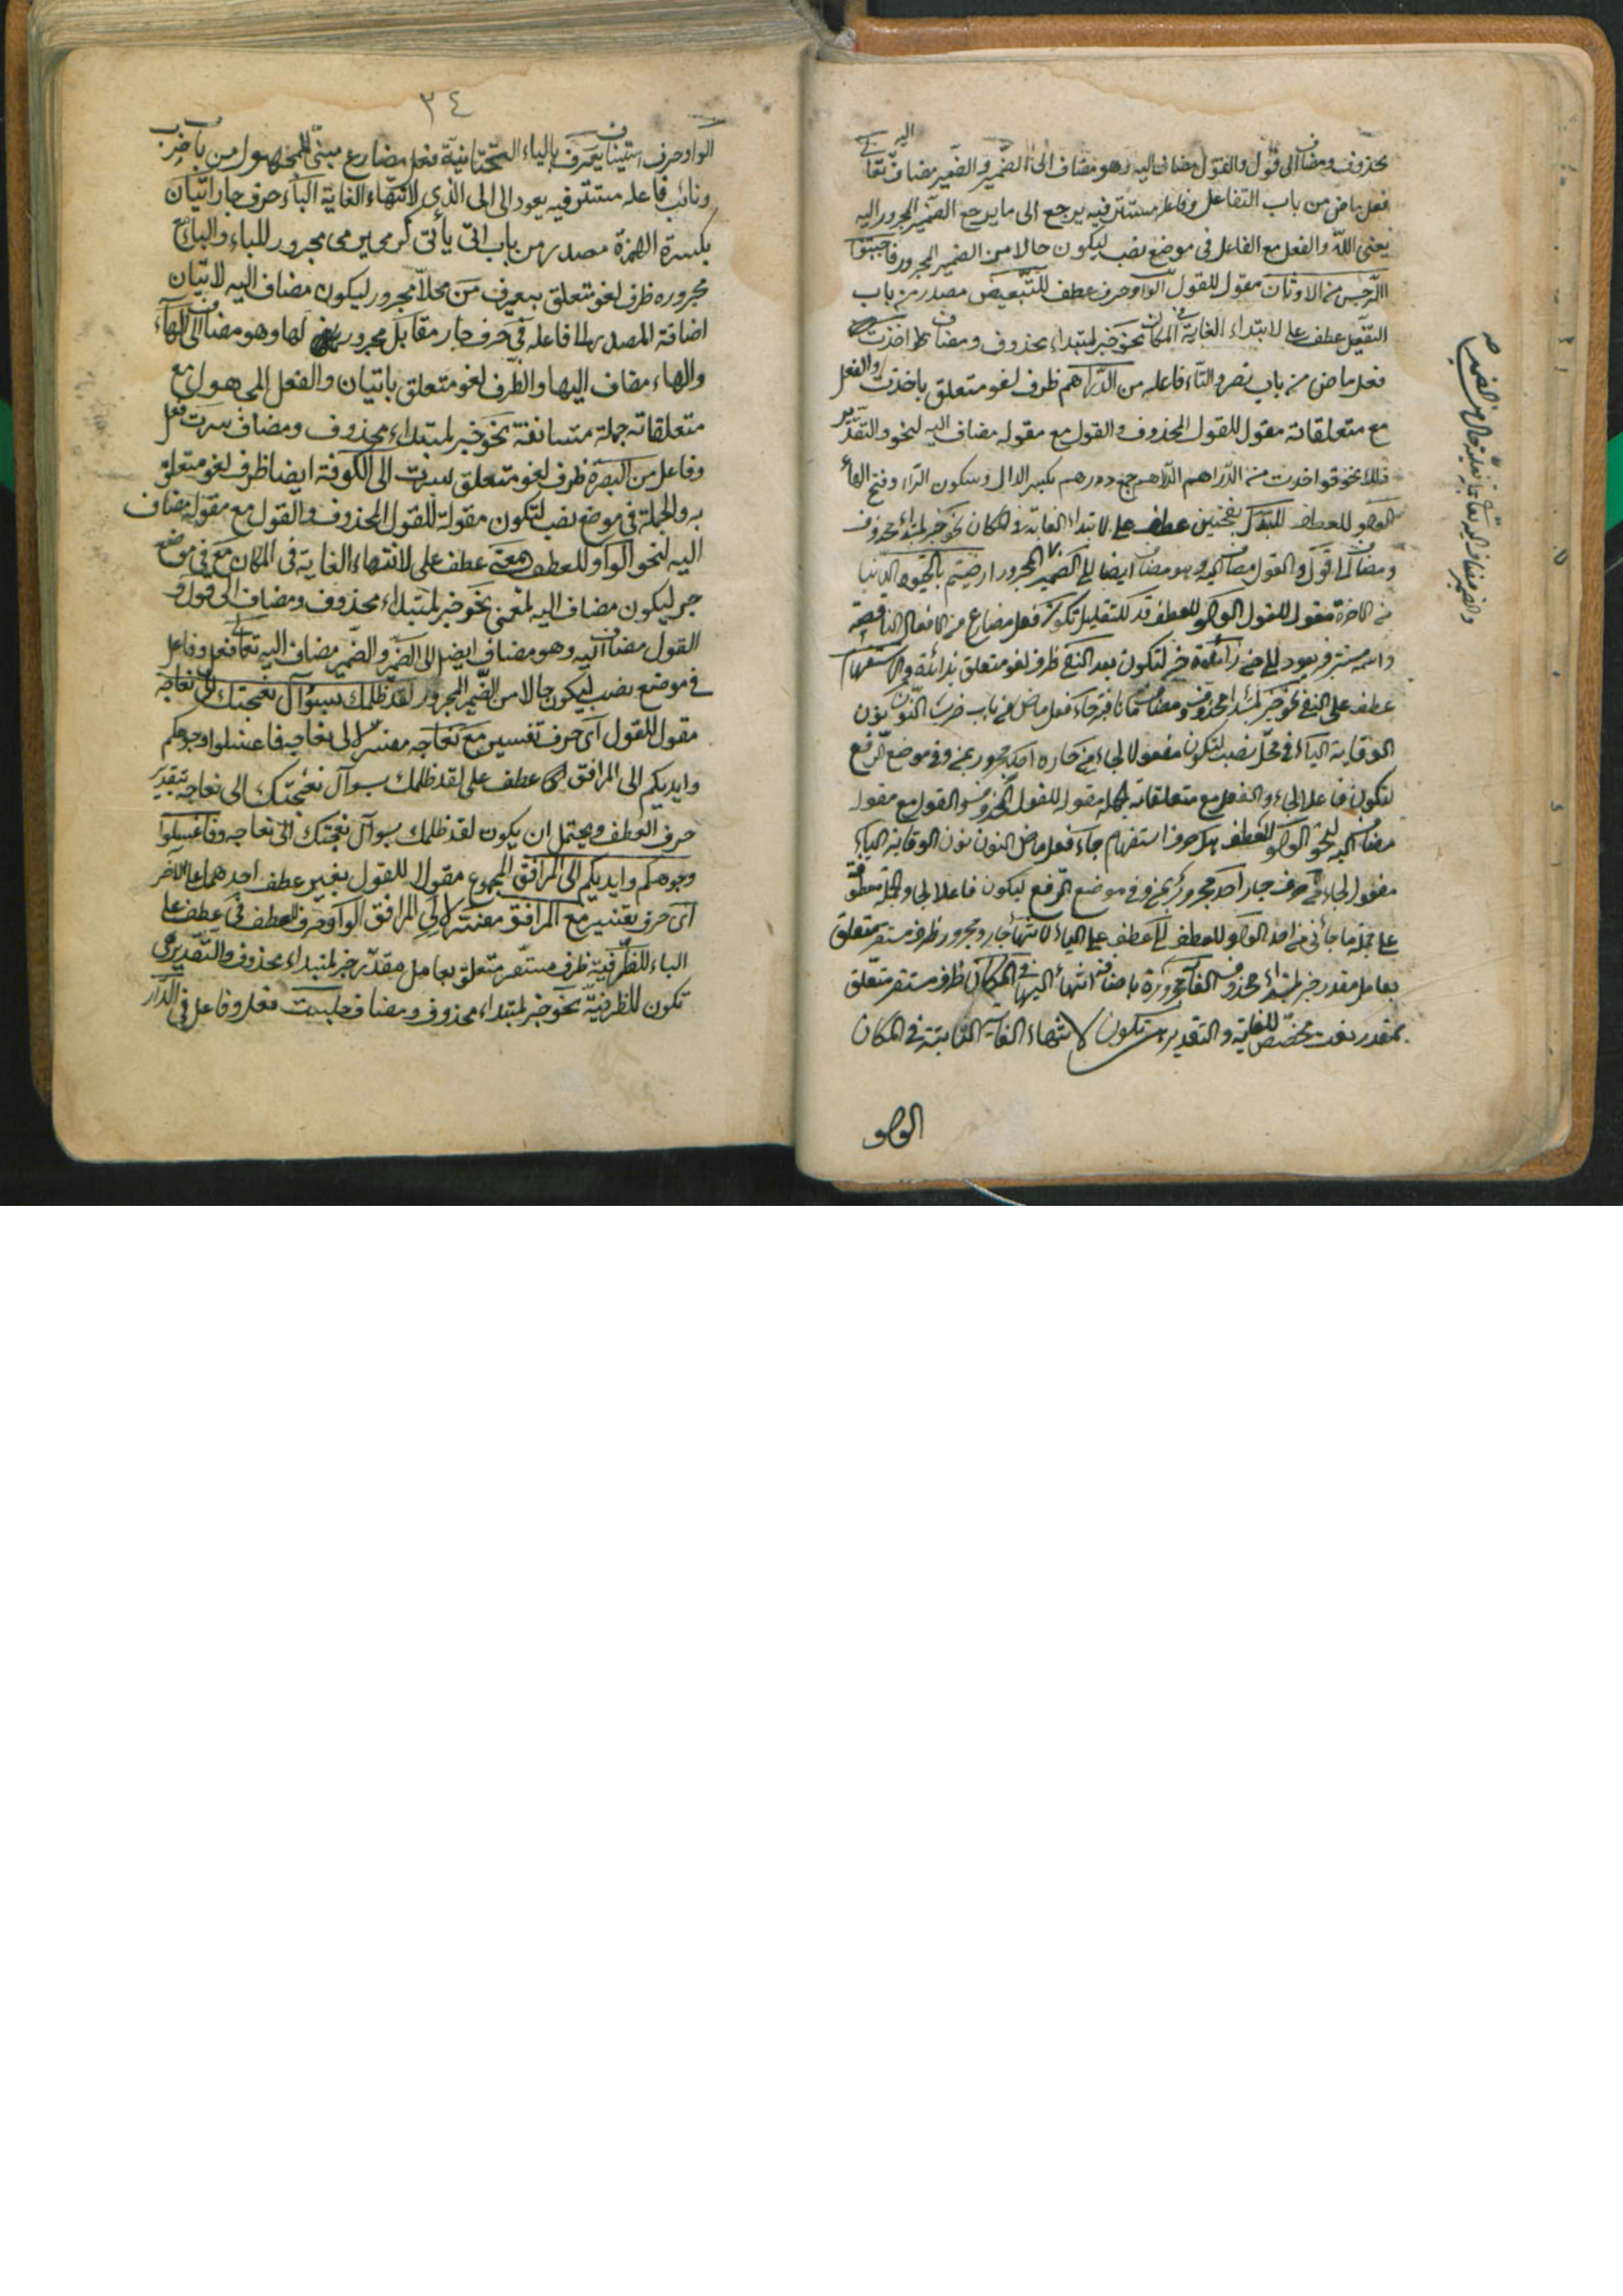 محذوف ومضاف الى قول والقول مضاف اليه وهو مضاف الى الضمير والضمير مضاف اليه تعالى
فعل ماض من باب التفاعل وفاعله مستتر فيه يرجع الى ما يرجع الضمير المجرور اليه
يعنى الله والفعل مع الفاعل فى موضع نصب ليكون حالا من الضمير المجرور فاجتنبوا
الرجس من الاوثان مقول للقول الواو حرف عطف للتبعيض مصدر من باب
التفعيل عطف على لابتداء الغاية فى المكان نحو خبر لمبتداء محذوف ومضاف اخذت
فعل ماض من باب نصر والتاء فاعله من الدراهم ظرف لغو متعلق باخذت والفعل
مع متعلقاته مقول للقول المحذوف والقول مع مقوله مضاف اليه لنحو والتقدير
نحو قولك اخذت من الدراهم الدراهم جمع درهم بكسر الدال وسكون الراء وفتح الهاء
الواو للعطف للبدل بفتحتين عطف على لابتداء الغاية فى المكان نحو خبر لمبتداء محذوف
ومضاف الى قول والقول مضاف اليه وهو مضاف ايضا الى الضمير المجرور ارضيتم بالحيوة الدنيا
من الاخرة مقول للقول الواو للعطف قد للتقليل تكون فعل مضارع من الافعال الناقصة
واسمه مستتر فيه يعود الى من زائدة خبر لتكون بعد النفى ظرف لغو متعلق بزائدة والاستفهام
عطف على النفى نحو خبر لمبتداء محذوف ومضاف ما نافية جاء فعل ماض من باب ضرب النون نون
الوقاية الياء فى محل نصب لتكون مفعولا لجاء من جاره احد مجرور بمن وفى موضع الرفع
لتكون فاعلا لجاء والفعل مع متعلقاته جملة مقولة للقول المحذوف والقول مع مقوله
مضاف اليه لنحو الواو للعطف هل حرف استفهام جاء فعل ماض النون نون الوقاية الياء
مفعول لجاء من حرف جار احد مجرور بمن وفى موضع الرفع ليكون فاعلا لجاء والجملة معطوفة
على جملة ما جائنى من احد الواو للعطف الى عطف على الباء لانتهاء جار ومجرور ظرف مستقر متعلق
بعامل مقدر خبر لمبتداء محذوف الغاية مجرورة باضافة انتهاء اليها فى المكان ظرف مستقر متعلق
بمقدر نعت مخصص للغاية والتقدير تكون لانتهاء الغاية الثابتة فى المكان
الواو
٣٤
الواو حرف استيناف يعرف بالياء التحتانية فعل مضارع مبنى للمجهول من باب ضرب
ونائب فاعله مستتر فيه يعود الى الى الذى لانتهاء الغاية الباء حرف جار اتيان
بكسرة الهمزة مصدر من باب اتى يأتى كرمى يرمى مجرور للباء والباء مع
مجروره ظرف لغو متعلق بيعرف من محلا مجرور ليكون مضاف اليه لاتيان
اضافة المصدر الى فاعله فى حرف جار مقابل مجرور لها وهو مضاف الى الهاء
والهاء مضاف اليها والظرف لغو متعلق باتيان والفعل المجهول مع
متعلقاته جملة مستانفة نحو خبر لمبتداء محذوف ومضاف سرت فعل
وفاعل من البصرة ظرف لغو متعلق لسرت الى الكوفة ايضا ظرف لغو متعلق
به والجملة فى موضع نصب لتكون مقولة للقول المحذوف والقول مع مقوله مضاف
اليه لنحو الواو للعطف بمعنى عطف على لانتهاء الغاية فى المكان مع فى موضع
جر ليكون مضاف اليه لمعنى نحو خبر لمبتداء محذوف ومضاف الى قول و
القول مضاف اليه وهو مضاف ايضا الى الضمير والضمير مضاف اليه تعالى فعل وفاعل
فى موضع نصب ليكون حالا من الضمير المجرور لقد ظلمك بسوآل نعجتك الى نعاجه
مقول للقول اى حرف تفسير مع نعاجه مفسر الى نعاجه فاغسلوا وجوهكم
وايديكم الى المرافق عطف على لقد ظلمك بسوآل نعجتك الى نعاجه بتقدير
حرف العطف ويحتمل ان يكون لقد ظلمك بسوآل نعجتك الى نعاجه وفاغسلوا
وجوهكم وايديكم الى المرافق المجموع مقولا للقول بغير عطف احدهما على الآخر
اى حرف تفسير مع المرافق مفسر الى المرافق الواو حرف للعطف فى عطف على
الباء للظرفية ظرف مستقر متعلق بعامل مقدر خبر لمبتداء محذوف والتقدير هى
تكون للظرفية نحو خبر لمبتداء محذوف ومضاف جلست فعل وفاعل فى الدار